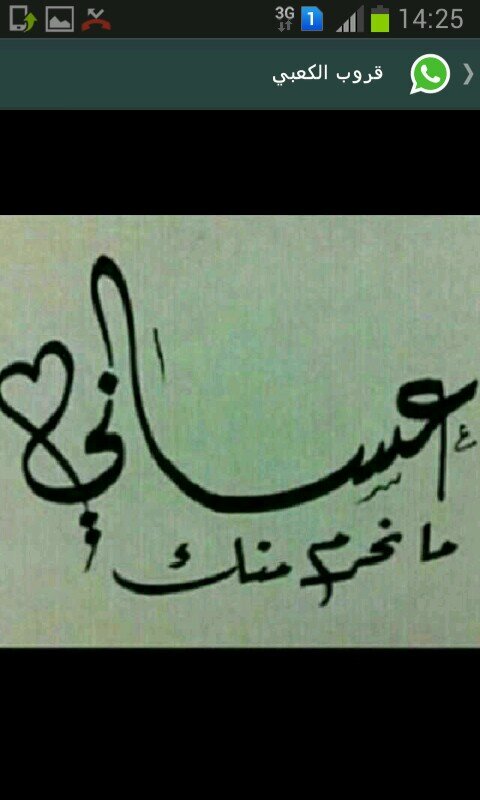 3G 1 14:25
قروب الكعبي
عساني
ما نحرم منك